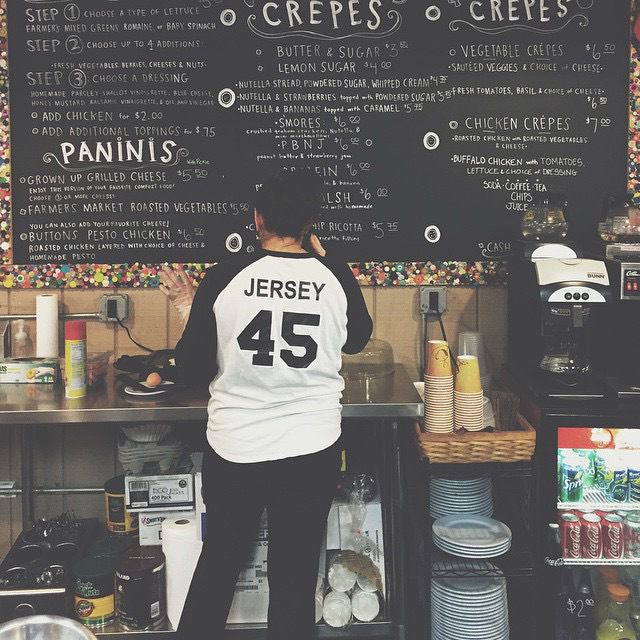 STEP 1 CHOOSE A TYPE OF LETTUCE
FARMERS MIXED GREENS, ROMAINE, OR BABY SPINACH
STEP 2 CHOOSE UP TO 4 ADDITIONS
FRESH VEGETABLES, BERRIES, CHEESES & NUTS
STEP 3 CHOOSE A DRESSING
HOMEMADE PARSLEY-SHALLOT VINAIGRETTE, BLUE CHEESE,
HONEY MUSTARD, BALSAMIC VINAIGRETTE, & OIL AND VINEGAR
ADD CHICKEN for $2.00
ADD ADDITIONAL TOPPINGS for $.75
PANINIS
GROWN UP GRILLED CHEESE $5.50
ENJOY THIS VERSION OF YOUR FAVORITE COMFORT FOOD!
CHOOSE OR MORE CHEESES
FARMERS MARKET ROASTED VEGETABLES $5.50
YOU CAN ALSO ADD YOUR FAVORITE CHEESE!
BUTTONS PESTO CHICKEN $6.50
ROASTED CHICKEN LAYERED WITH CHOICE OF CHEESE &
HOMEMADE PESTO
CRÊPES
BUTTER & SUGAR $3.50
LEMON SUGAR $4.00
NUTELLA SPREAD, POWDERED SUGAR, WHIPPED CREAM $4.75
NUTELLA & STRAWBERRIES topped with POWDERED SUGAR $5.75
NUTELLA & BANANAS topped with CARAMEL $5.75
S'MORES $6.00
crushed graham crackers, Nutella, &
mini marshmallows
PBNJ $6.00
peanut butter & strawberry jam
& banana
$6.00
with homemade
RICOTTA $5.75
ricotta filling
CRÊPES
VEGETABLE CRÊPES $6.50
SAUTÉED VEGGIES & CHOICE of CHEESE
FRESH TOMATOES, BASIL, & CHOICE of CHEESE
$6.50
CHICKEN CRÊPES $7.00
ROASTED CHICKEN with ROASTED VEGETABLES
& CHEESE
BUFFALO CHICKEN with TOMATOES,
LETTUCE & CHOICE of DRESSING
SODA·COFFEE·TEA
CHIPS
JUICE
CASH
JERSEY
45
BUNN
400 Pack
Sprite
Coca-Cola
$2.00